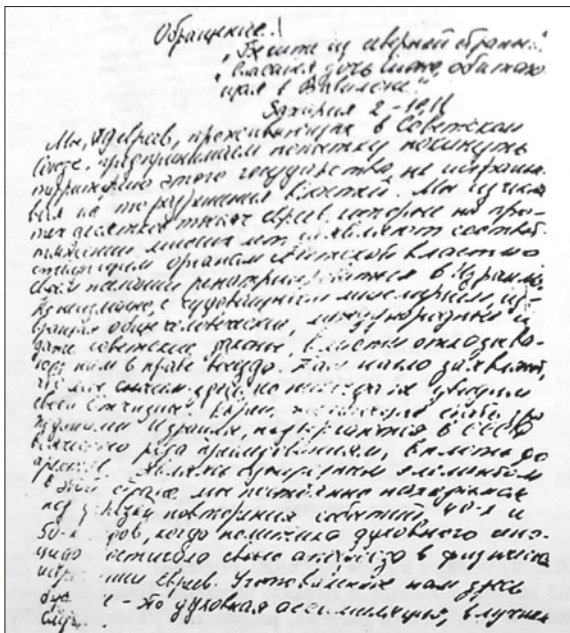 Обращение!
„Бегите из северной страны"..
„спасайся, дочь Сиона, обитаю-
щая в Вавилоне."
Захария 2-10,11
Мы, 9 евреев, проживающих в Советском
Союзе, предпринимаем попытку покинуть
территорию этого государства, не испраши-
вая на то разрешения властей. Мы из числа
тех десятков тысяч евреев, которые на про-
тяжении многих лет заявляют соответ-
ствующим органам Советской власти о
своём желании репатриироваться в Израиль.
Но неизменно, с чудовищным лицемерием,
общечеловеческие, международные и
даже советские законы, власти отказыва-
ют нам в праве выезда. Нам нагло заявляют,
что мы сгниём здесь, но никогда не увидим
своей Отчизны. Евреи,
Израиля, подвергаются в СССР
всяческого рода преследованиям, вплоть до
Являясь элементом
в этой стране, мы постоянно находимся
под угрозой повторения событий 40-х и
50-х годов, когда политика духовного
достигла своего апогея в физическом
евреев. Уготованное нам здесь
- это духовная ассимиляция, в лучшем